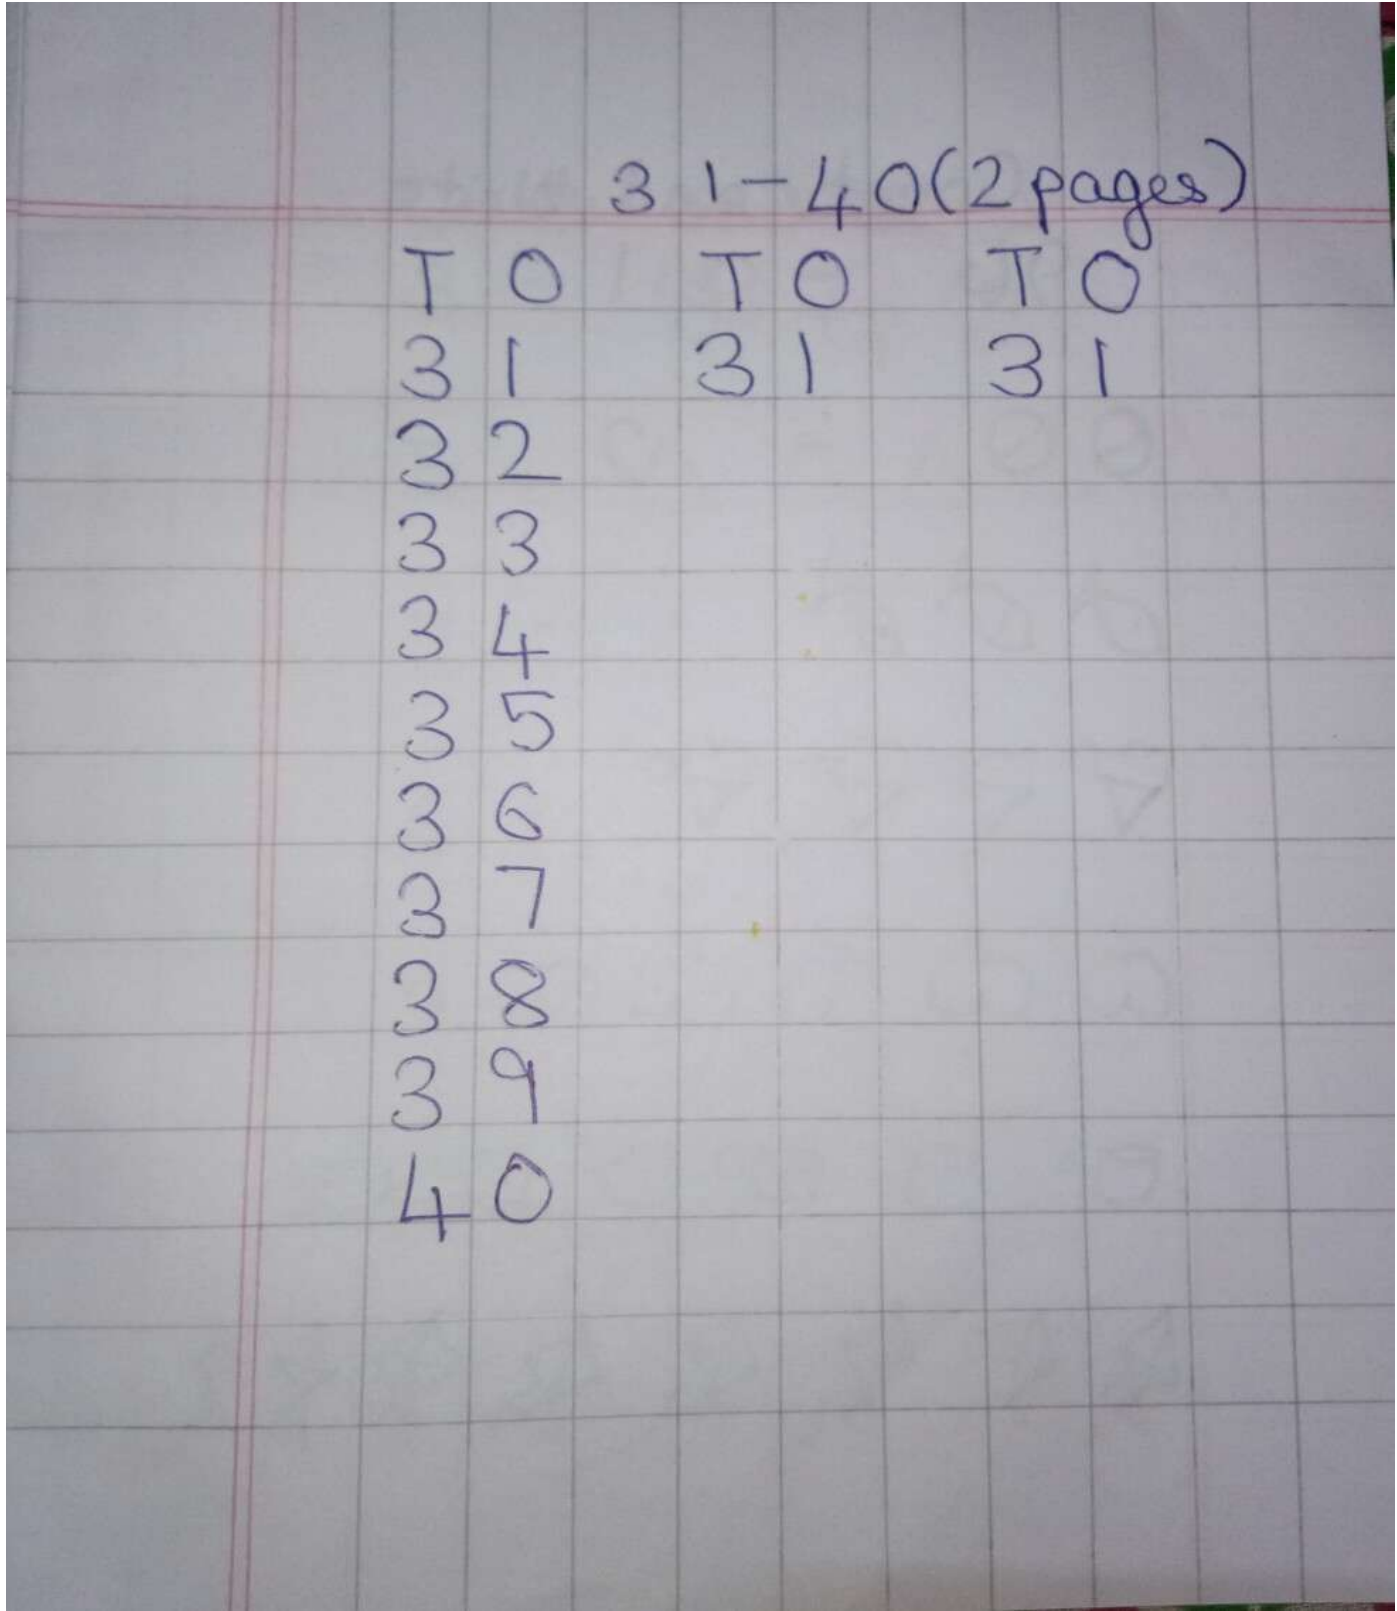 31-40(2 pages)
T O T O T O
3 1 3 1 3 1
3 2
3 3
3 4
3 5
3 6
3 7
3 8
3 9
4 0